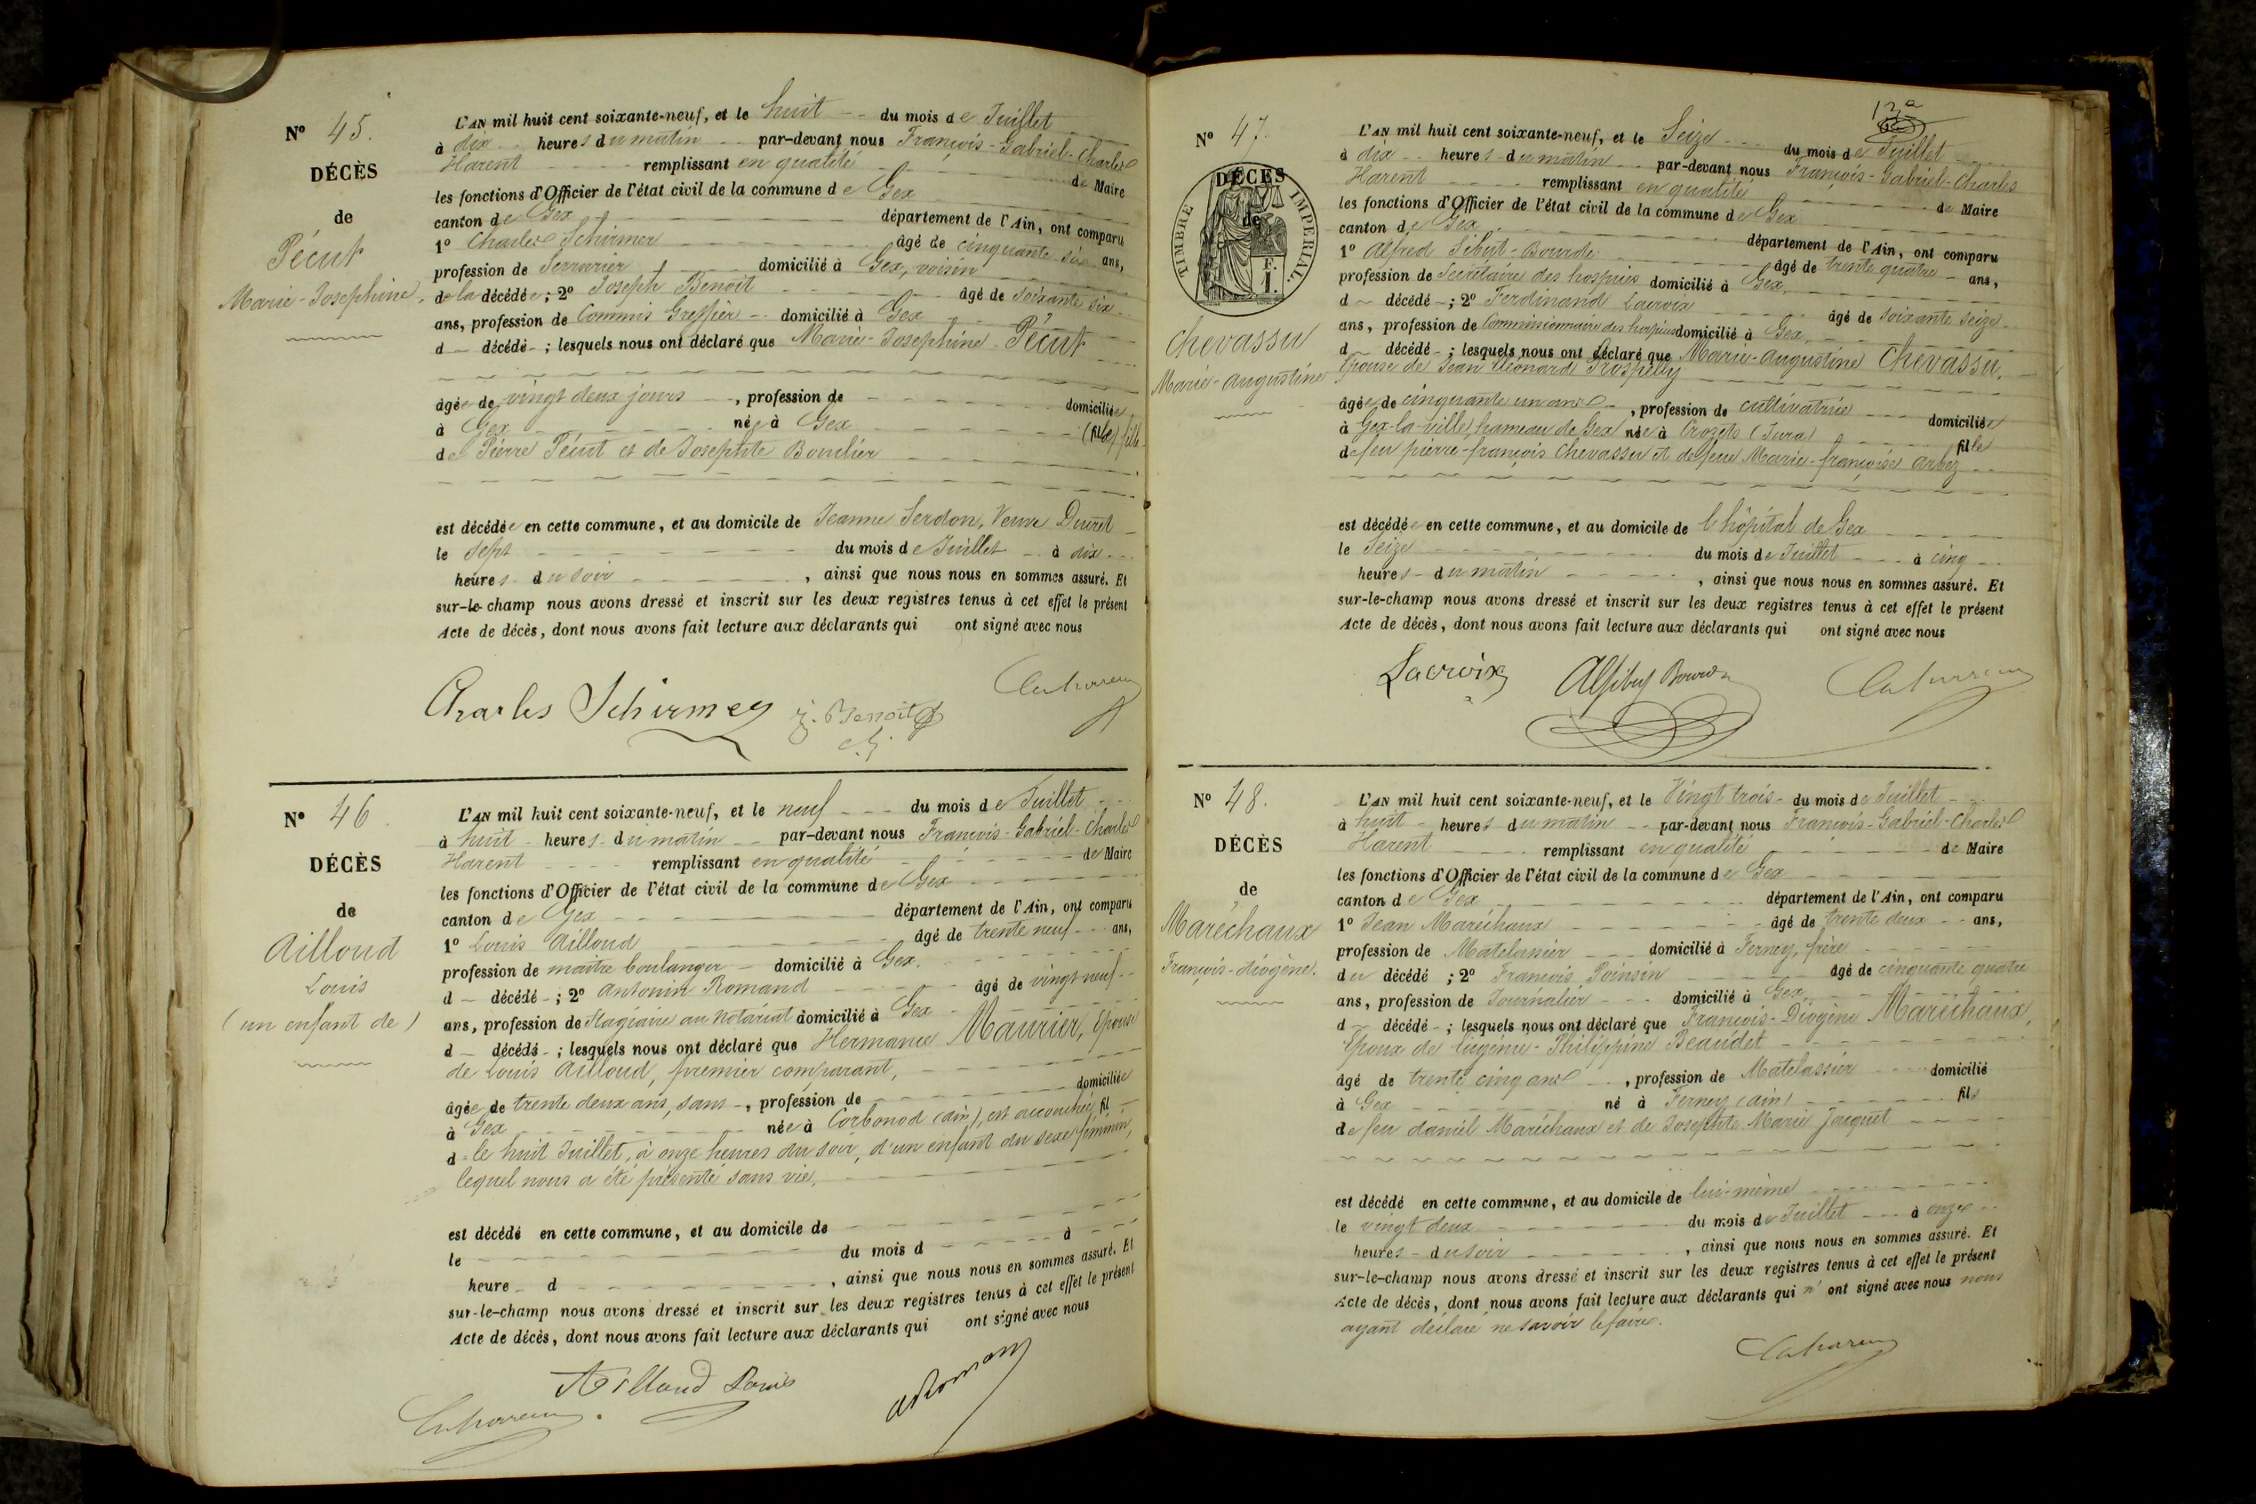 N° 45.
DÉCÈS
de
Pécut
Marie-Josephine.
L'AN mil huit cent soixante-neuf, et le huit du mois de Juillet
à dix heures du matin par-devant nous François-Gabriel-Charles
Harent remplissant en qualité de Maire
les fonctions d'Officier de l'état civil de la commune de Gex
canton de Gex département de l'Ain, ont comparu
1° Charles Schirmer âgé de cinquante six ans,
profession de Serrurier domicilié à Gex, voisin
de la décédée; 2° Joseph Benoit âgé de soixante six
ans, profession de Commis Greffier domicilié à Gex
d décédé ; lesquels nous ont déclaré que Marie-Josephine Pécut
âgée de vingt deux jours, profession de domiciliée
à Gex née à Gex fille
de Pierre Pécut et de Josephte Boulier
est décédée en cette commune, et au domicile de Jeanne Serdon, Veuve Ducret
le sept du mois de Juillet à dix
heures du soir, ainsi que nous nous en sommes assuré. Et
sur-le-champ nous avons dressé et inscrit sur les deux registres tenus à cet effet le présent
Acte de décès, dont nous avons fait lecture aux déclarants qui ont signé avec nous
Charles Schirmer J. Benoit
N° 46.
DÉCÈS
de
Ailloud
Louis
(un enfant de)
L'AN mil huit cent soixante-neuf, et le neuf du mois de Juillet
à huit heures du matin par-devant nous François-Gabriel-Charles
Harent remplissant en qualité de Maire
les fonctions d'Officier de l'état civil de la commune de Gex
canton de Gex département de l'Ain, ont comparu
1° Louis Ailloud âgé de trente neuf ans,
profession de maître boulanger domicilié à Gex.
d décédé ; 2° Antonin Romand âgé de vingt-neuf
ans, profession de Stagiaire au Notariat domicilié à Gex
d décédé ; lesquels nous ont déclaré que Hermance Maurier, Epouse
de Louis Ailloud, premier comparant,
âgée de trente deux ans, sans, profession de domiciliée
à Gex née à Corbonod (ain), est accouchée fil
d le huit Juillet, à onze heures du soir, d'un enfant du sexe féminin,
lequel nous a été présenté sans vie.
est décédé en cette commune, et au domicile de
le du mois d à
heure d , ainsi que nous nous en sommes assuré. Et
sur-le-champ nous avons dressé et inscrit sur les deux registres tenus à cet effet le présent
Acte de décès, dont nous avons fait lecture aux déclarants qui ont signé avec nous
Ailloud Louis
aRoman
13a
N° 47.
TIMBRE IMPERIAL
DÉCÈS
de
F.
1.
Chevassu
Marie-Augustine
L'AN mil huit cent soixante-neuf, et le Seize du mois de Juillet
à dix heures du matin par-devant nous François-Gabriel-Charles
Harent remplissant en qualité de Maire
les fonctions d'Officier de l'état civil de la commune de Gex
canton de Gex département de l'Ain, ont comparu
1° Alfred Sibut-Bourde âgé de trente quatre ans,
profession de Secrétaire des hospices domicilié à Gex,
d décédé ; 2° Ferdinand Lacroix âgé de soixante seize
ans, profession de Commissionnaire des hospices domicilié à Gex,
d décédé ; lesquels nous ont déclaré que Marie-Augustine Chevassu,
Epouse de Jean Léonard
âgée de cinquante un ans, profession de cultivatrice domiciliée
à Gex-la-ville, hameau de Gex née à Crozets (Jura) fille
de feu pierre-françois Chevassu et de feue Marie-françoise Arbez
est décédée en cette commune, et au domicile de l'hôpital de Gex
le Seize du mois de Juillet à cinq
heures du matin, ainsi que nous nous en sommes assuré. Et
sur-le-champ nous avons dressé et inscrit sur les deux registres tenus à cet effet le présent
Acte de décès, dont nous avons fait lecture aux déclarants qui ont signé avec nous
Lacroix
N° 48.
DÉCÈS
de
Maréchaux
François-diogène.
L'AN mil huit cent soixante-neuf, et le Vingt trois du mois de Juillet
à huit heures du matin par-devant nous François-Gabriel-Charles
Harent remplissant en qualité de Maire
les fonctions d'Officier de l'état civil de la commune de Gex
canton de Gex département de l'Ain, ont comparu
1° Jean Maréchaux âgé de trente deux ans,
profession de Matelassier domicilié à Ferney, frère
du décédé ; 2° François Poinsin âgé de cinquante quatre
ans, profession de Journalier domicilié à Gex,
d décédé ; lesquels nous ont déclaré que François-Diogène Maréchaux,
Epoux de Eugénie-Philippine Beaudet
âgé de trente cinq ans, profession de Matelassier domicilié
à Gex né à Ferney (ain) fils
de feu daniel Maréchaux et de Josephte Marie Jacquet
est décédé en cette commune, et au domicile de lui-même
le vingt deux du mois de Juillet à onze
heures du soir, ainsi que nous nous en sommes assuré. Et
sur-le-champ nous avons dressé et inscrit sur les deux registres tenus à cet effet le présent
Acte de décès, dont nous avons fait lecture aux déclarants qui n'ont signé avec nous nous
ayant déclaré ne savoir le faire.